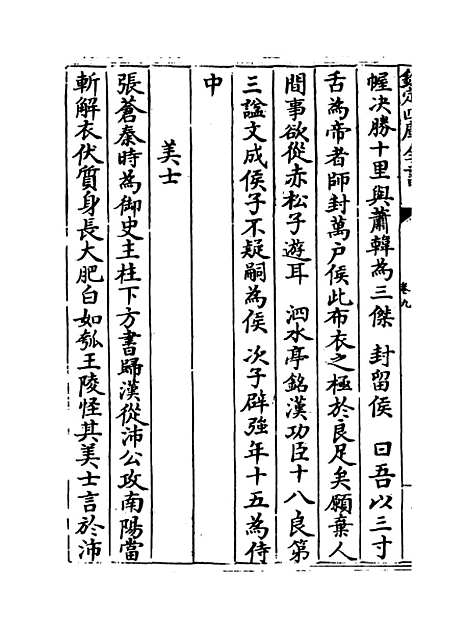 欽定四庫全書
卷九
幄決勝千里與蕭韓為三傑 封留侯 曰吾以三寸
舌為帝者師封萬户侯此布衣之極於良足矣願棄人
間事欲從赤松子遊耳 泗水亭銘漢功臣十八良第
三諡文成侯子不疑嗣為侯 次子辟強年十五為侍
中
美士
張蒼秦時為御史主柱下方書歸漢從沛公攻南陽當
斬解衣伏質身長大肥白如瓠王陵怪其美士言於沛